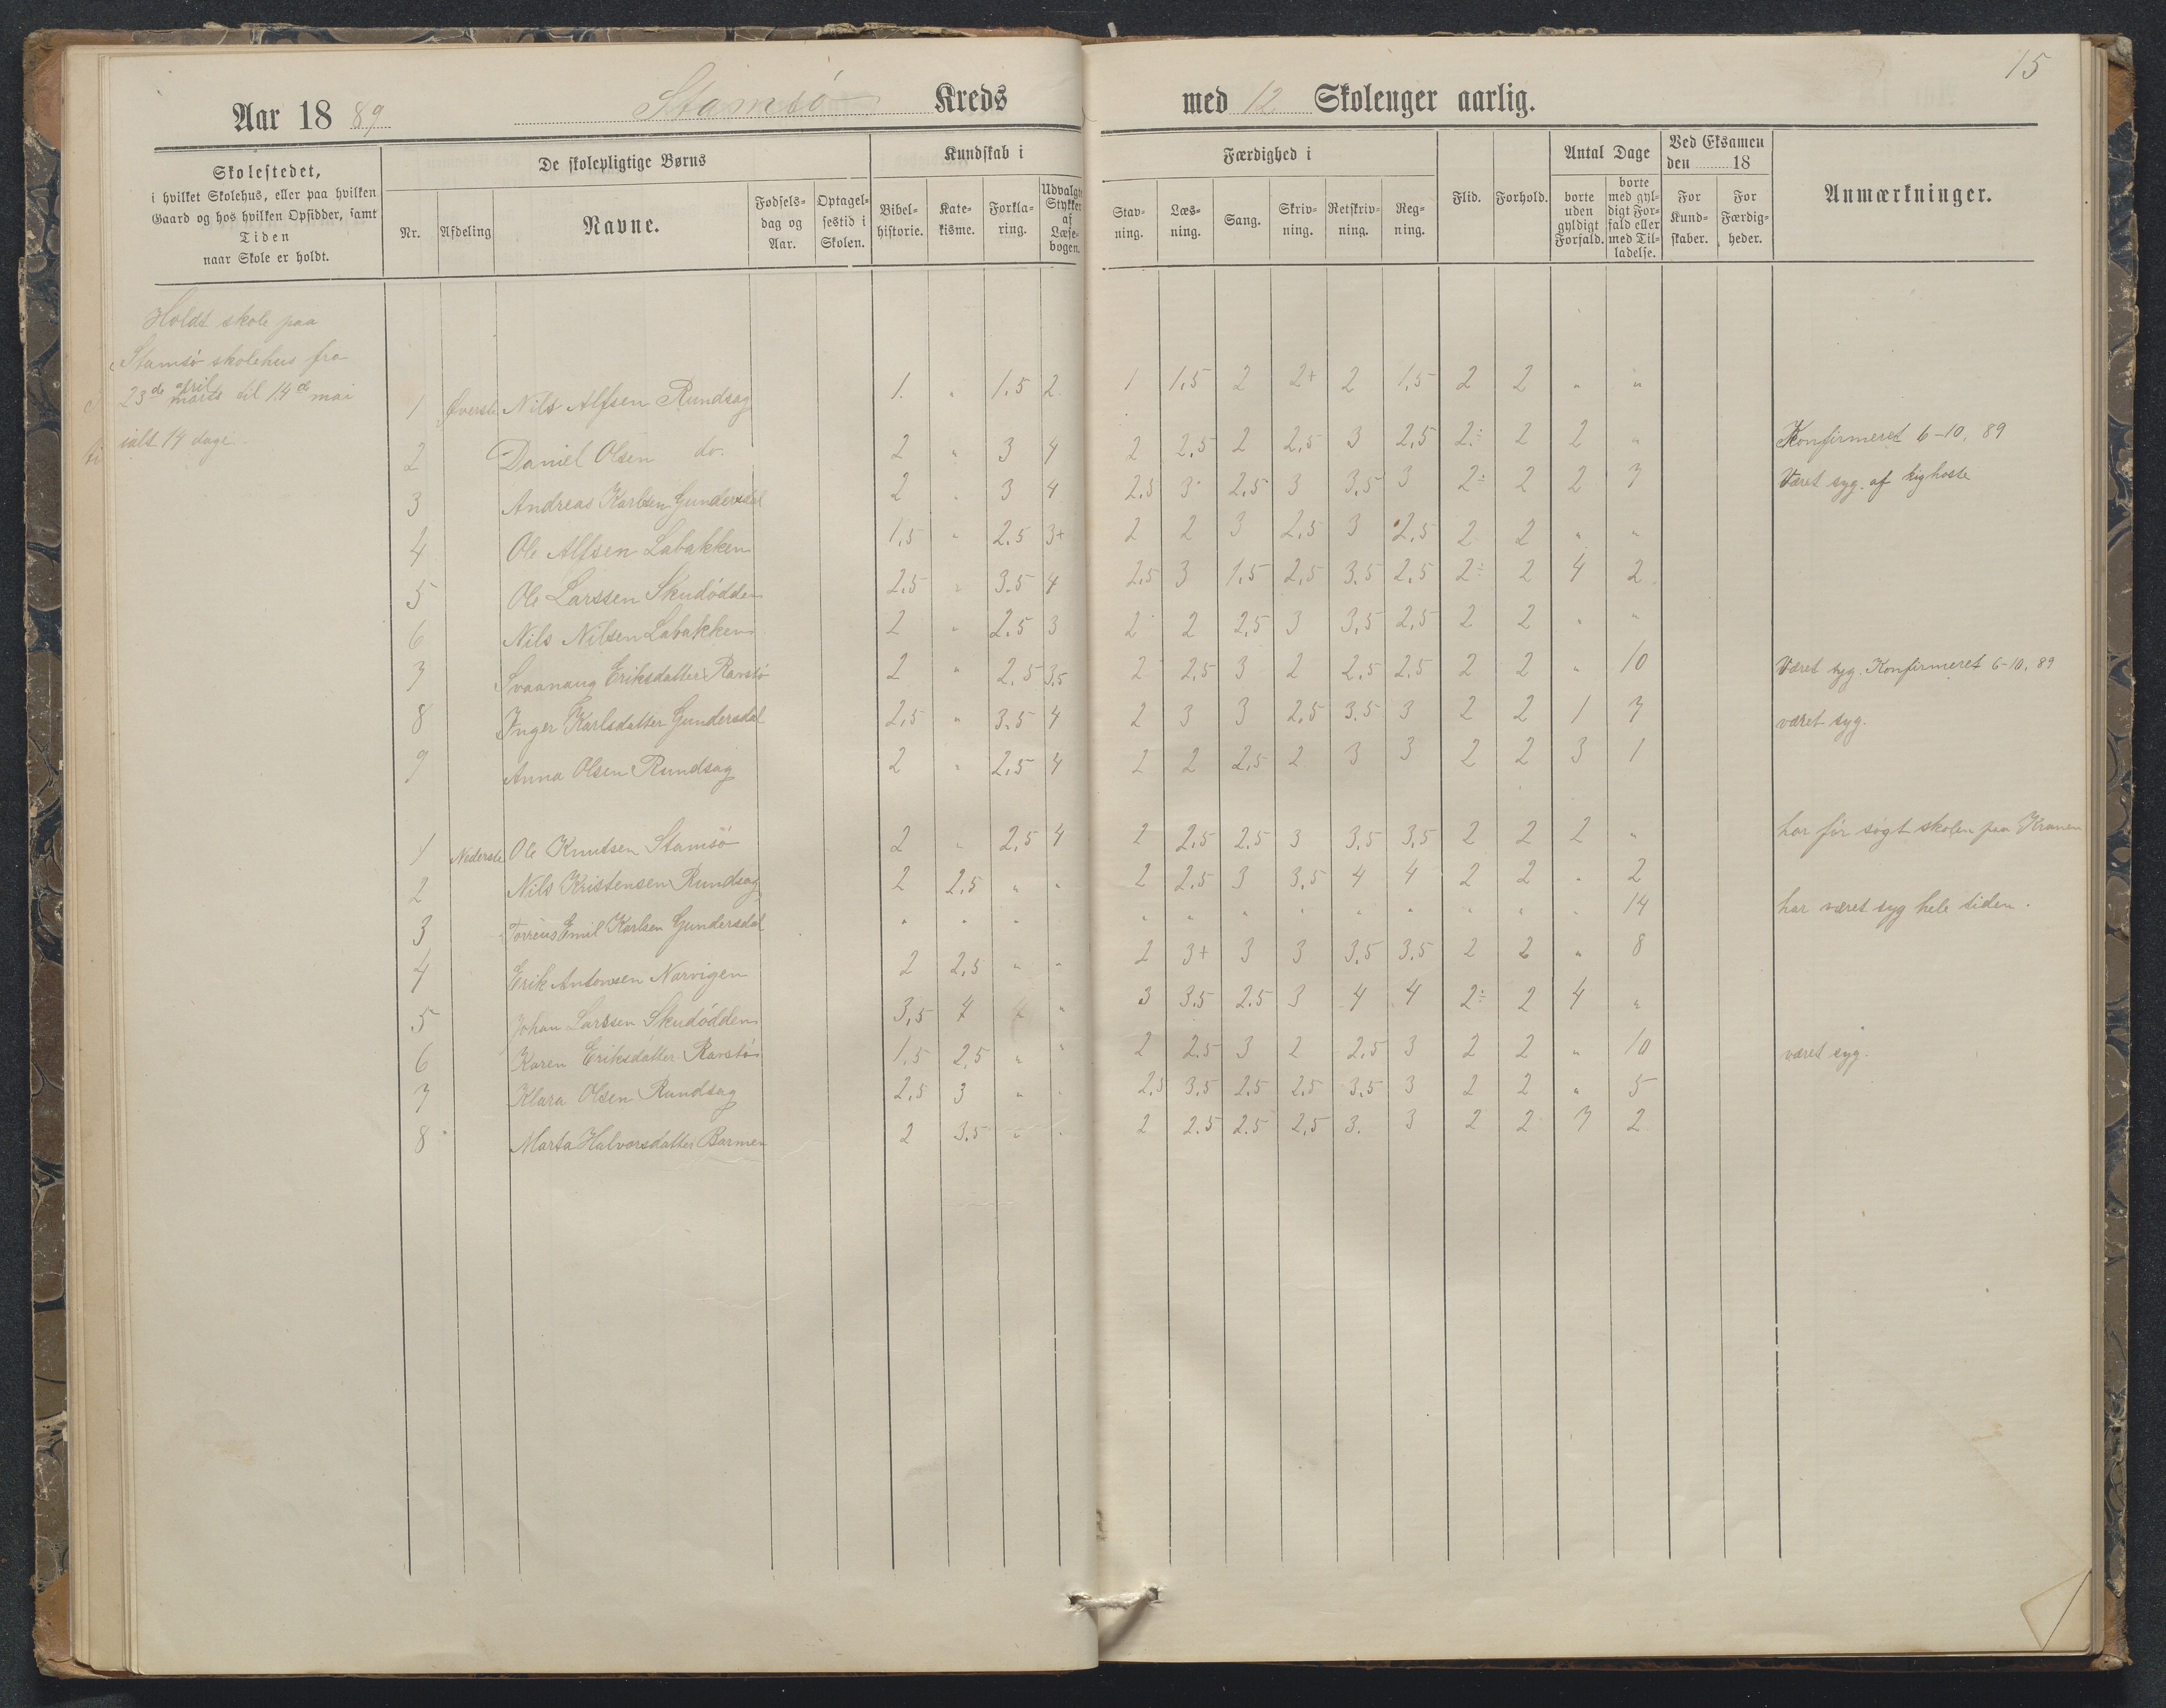 15
Aar 1889 Stamsø Kreds med 12 Skoleuger aarlig.
Skolestedet, i hvilket Skolehus, eller paa hvilken Gaard og hos hvilken Opsidder, samt Tiden naar Skole er holdt.
De skolepligtige Børns
Nr. Afdeling Navne. Fødselsdag og Aar. Optagelsestid i Skolen.
Kundskab i
Bibelhistorie. Katekisme. Forklaring. Udvalgte Stykker af Læsebogen.
Færdighed i
Stavning. Læsning. Sang. Skrivning. Retskrivning. Regning.
Flid. Forhold.
Antal Dage
borte uden gyldigt Forfald. borte med gyldigt Forfald eller med Tilladelse.
Ved Eksamen den 18
For Kundskaber. For Færdigheder.
Anmærkninger.
Holdt skole paa
Stamsø skolehus fra
23de april marts til 14de mai
ialt 14 dage.
1 Øverste Nils Alfsen Rundsag 1. " 1.5 2. 1 1,5 2 2+ 2 1,5 2 2 " "
2 Daniel Olsen do. 2 " 3 4 2 2,5 2 2,5 3 2,5 2÷ 2 2 " Konfirmeret 6-10, 89
3 Andreas Karlsen Gundersdal 2 " 3 4 2,5 3 2,5 3 3,5 3 2÷ 2 2 7 Været syg. af kighoste
4 Ole Alfsen Labakken 1,5 " 2.5 3+ 2 2 3 2,5 3 2,5 2 2 " "
5 Ole Larssen Skudödden 2,5 " 3.5 4 2,5 3 1,5 2,5 3.5 2,5 2÷ 2 4 2
6 Nils Nilsen Labakken 2 " 2.5 3 2 2 2,5 3 3,5 2,5 2 2 " "
7 Svaanaug Eriksdatter Ravstö 2 " 2,5 3,5 2 2,5 3 2 2,5 2,5 2 2 " 10 Været syg. Konfirmeret 6-10, 89
8 Inger Karlsdatter Gundersdal 2,5 " 3.5 4 2 3 3 2,5 3.5 3 2 2 1 7 været syg.
9 Anna Olsen Rundsag 2 " 2,5 4 2 2 2,5 2 3 3 2 2 3 1
1 Nederste Ole Knutsen Stamsö 2 " 2,5 4 2 2,5 2,5 3 3,5 3,5 2 2 2 " har för sögt skolen paa
2 Nils Kristensen Rundsag 2 2,5 " " 2 2.5 3 3,5 4 4 2 2 " 2
3 Emil Karlsen Gundersdal " " " " " " " " " " " " 14 har været syg hele tiden.
4 Erik Antonsen Narvigen 2 2,5 " " 2 3+ 3 3 3,5 3.5 2 2 " 8
5 Johan Larssen Skudödden 3,5 4 " 3 3.5 2.5 3 4 4 2÷ 2 4 "
6 Karen Eriksdatter Ravstö 1,5 2,5 " " 2 2.5 3 2 2,5 3 2 2 " 10 været syg.
7 Klara Olsen Rundsag 2,5 3 " " 2,5 3.5 2,5 2,5 3,5 3 2 2 " 5
8 Marta Halvorsdatter Barmen 2 3,5 " " 2 2.5 2.5 2,5 3. 3 2 2 7 2